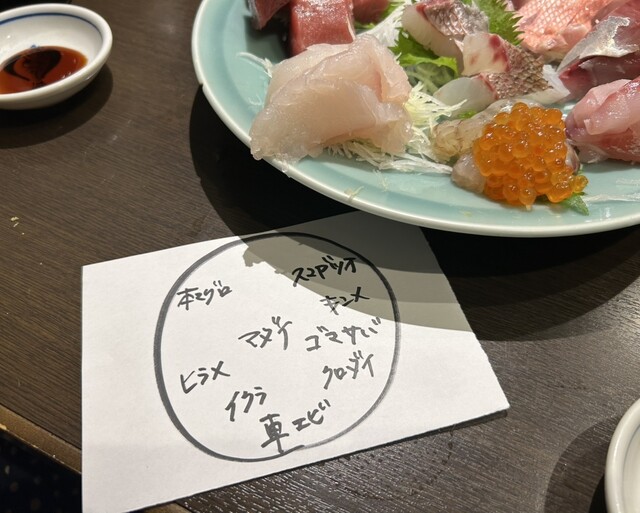 本マグロ
スマガツオ
キンメ
マダイ
ゴマサバ
ヒラメ
クロダイ
イクラ
車エビ